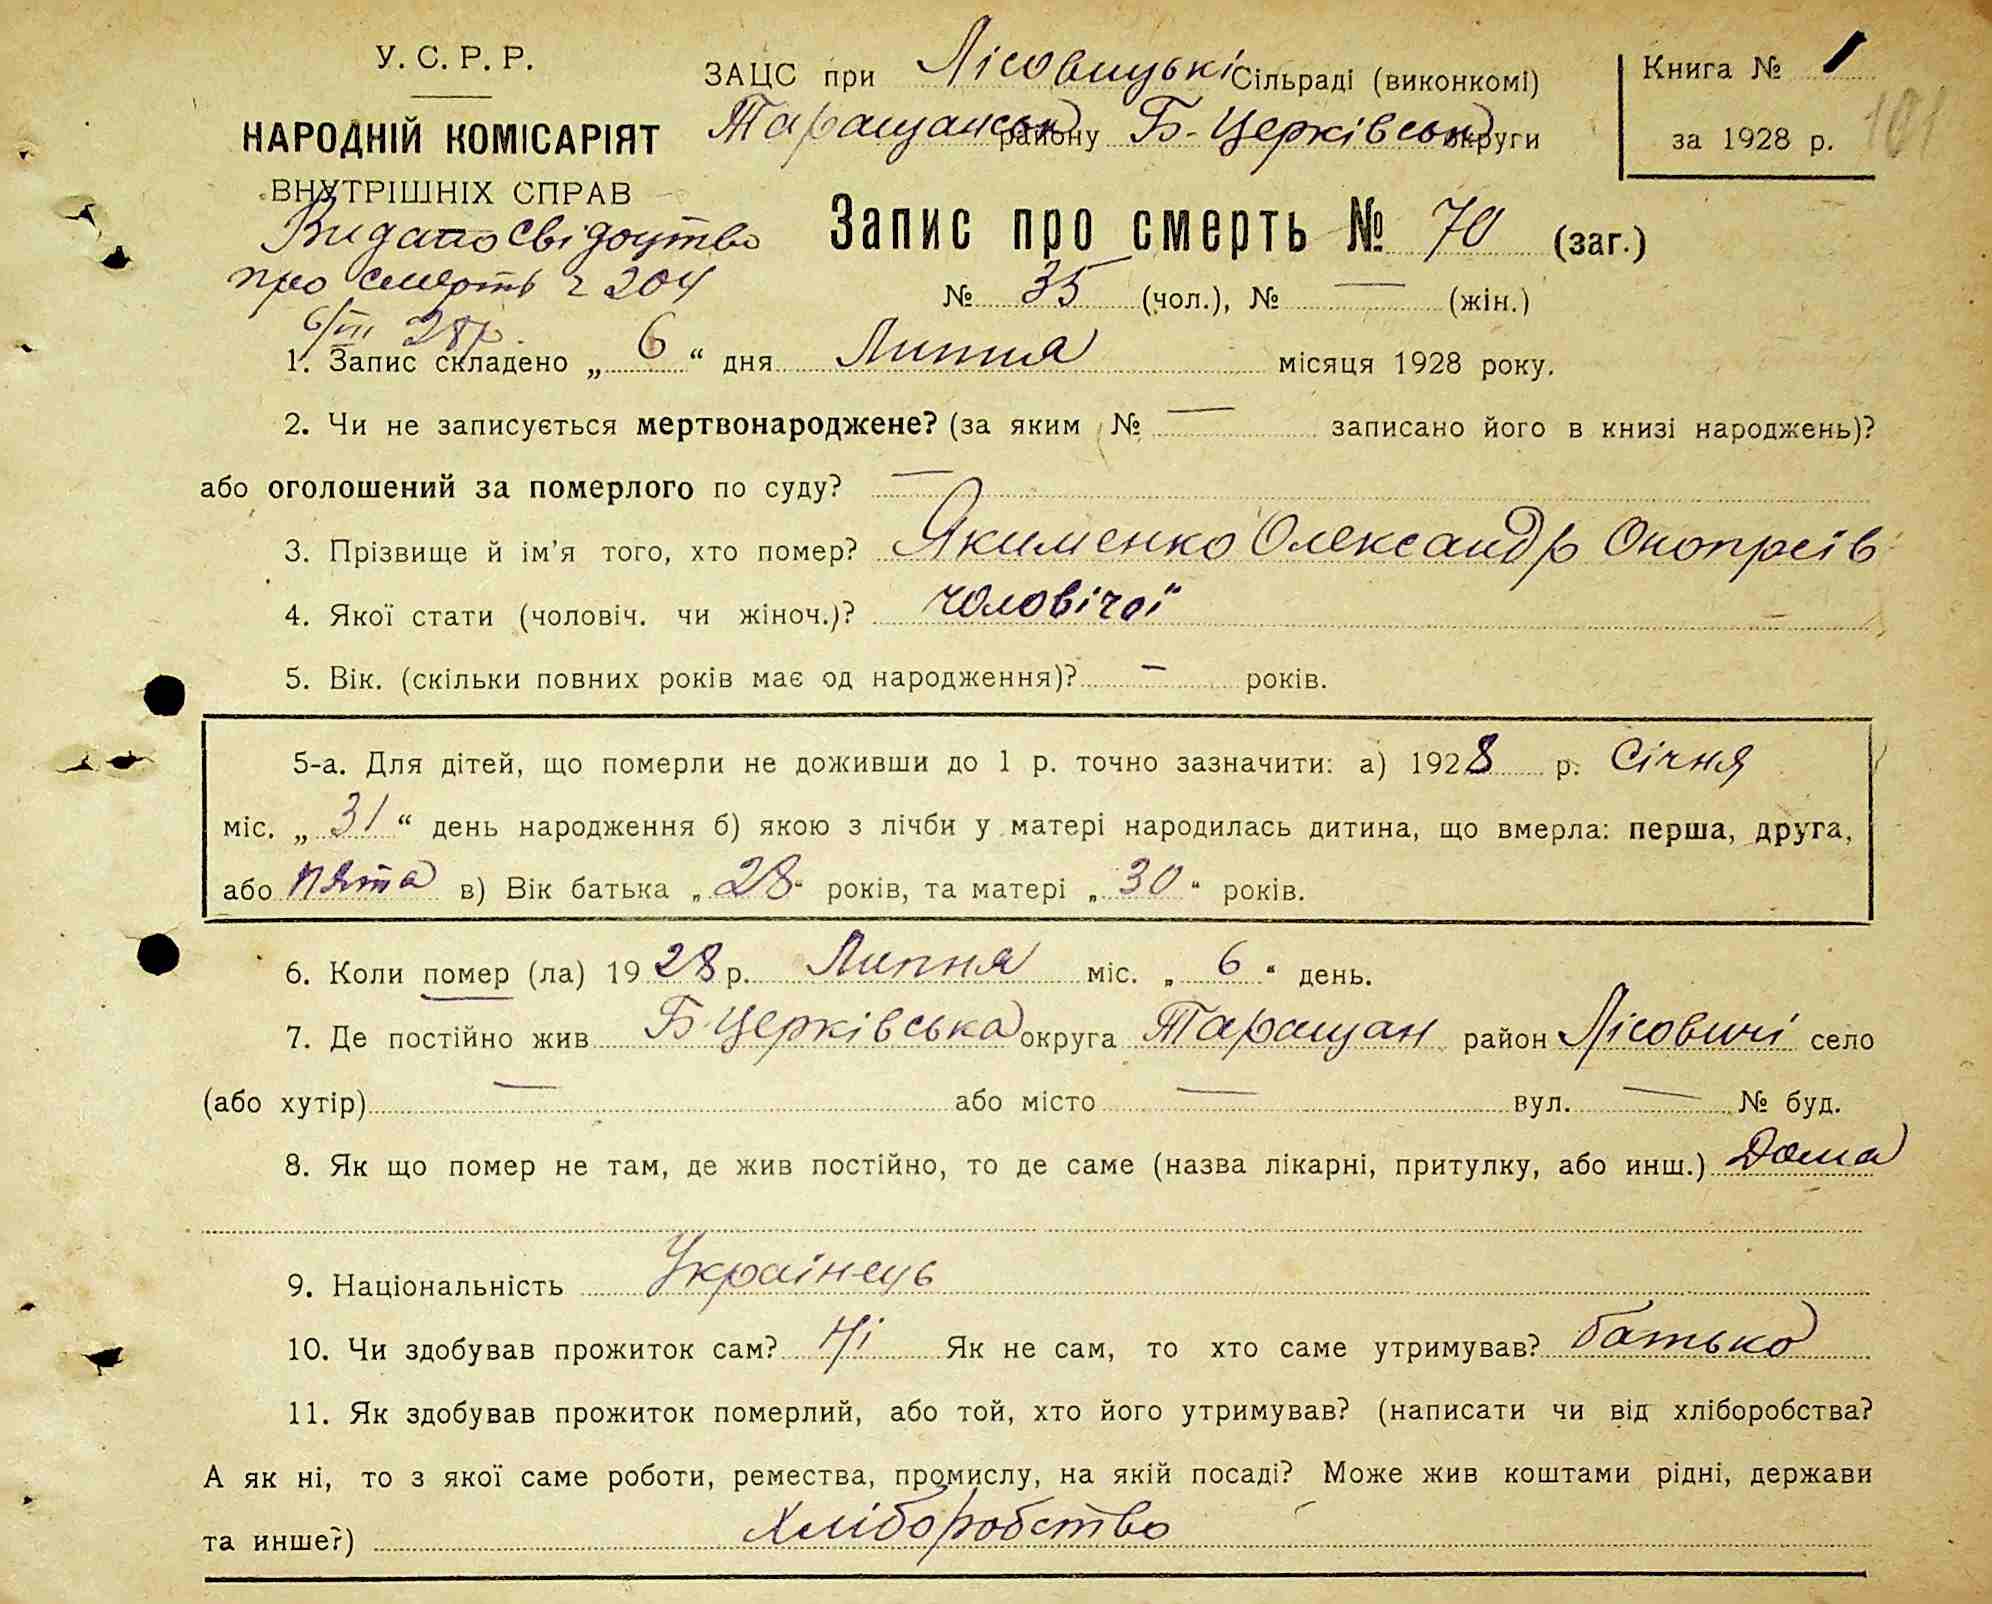 У. С. Р. Р.
НАРОДНІЙ КОМІСАРІЯТ
ВНУТРІШНІХ СПРАВ
Видано свідоцтво
про смерть ч 204
6/VII 28р.
ЗАЦС при Лісовицькі Сільраді (виконкомі)
Таращанськ району Б-Церківськ округи
Книга № 1
за 1928 р.
101
Запис про смерть № 70 (заг.)
№ 35 (чол.), № — (жін.)
1. Запис складено „ 6 “ дня Липня місяця 1928 року.
2. Чи не записується мертвонароджене? (за яким № — записано його в книзі народжень)?
або оголошений за померлого по суду? —
3. Прізвище й ім’я того, хто помер? Якименко Олександр Онопреів
4. Якої стати (чоловіч. чи жіноч.)? чоловічої
5. Вік. (скільки повних років має од народження)? — років.
5-а. Для дітей, що померли не доживши до 1 р. точно зазначити: а) 1928 р. Січня
міс. „ 31 “ день народження б) якою з лічби у матері народилась дитина, що вмерла: перша, друга,
або пята в) Вік батька „ 28 “ років, та матері „ 30 “ років.
6. Коли помер (ла) 1928 р. Липня міс. „ 6 “ день.
7. Де постійно жив Б-Церківська округа Таращан район Лісовичі село
(або хутір) — або місто — вул. — № буд.
8. Як що помер не там, де жив постійно, то де саме (назва лікарні, притулку, або инш.) Дома
9. Національність Українець
10. Чи здобував прожиток сам? Ні Як не сам, то хто саме утримував? батько
11. Як здобував прожиток померлий, або той, хто його утримував? (написати чи від хліборобства?
А як ні, то з якої саме роботи, ремества, промислу, на якій посаді? Може жив коштами рідні, держави
та инше?) Хліборобство